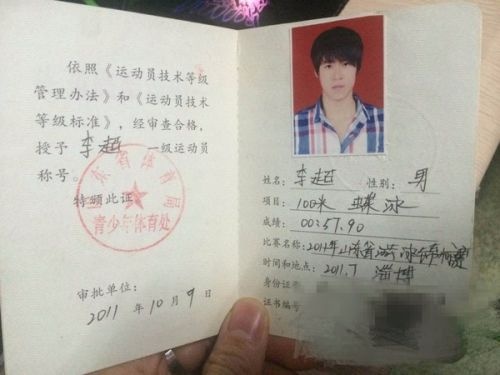 依照《运动员技术等级
管理办法》和《运动员技术
等级标准》，经审查合格，
授予 李超 一级运动员
称号。
特颁此证
东省体育局
青少年体育处
审批单位：
2011 年 10 月 9 日
姓名：李超 性别：男
项目：100米 蝶泳
成绩：00:57.90
比赛名称：2011年山东省游泳
时间和地点：2011.7 淄博
身份证号
证书编号